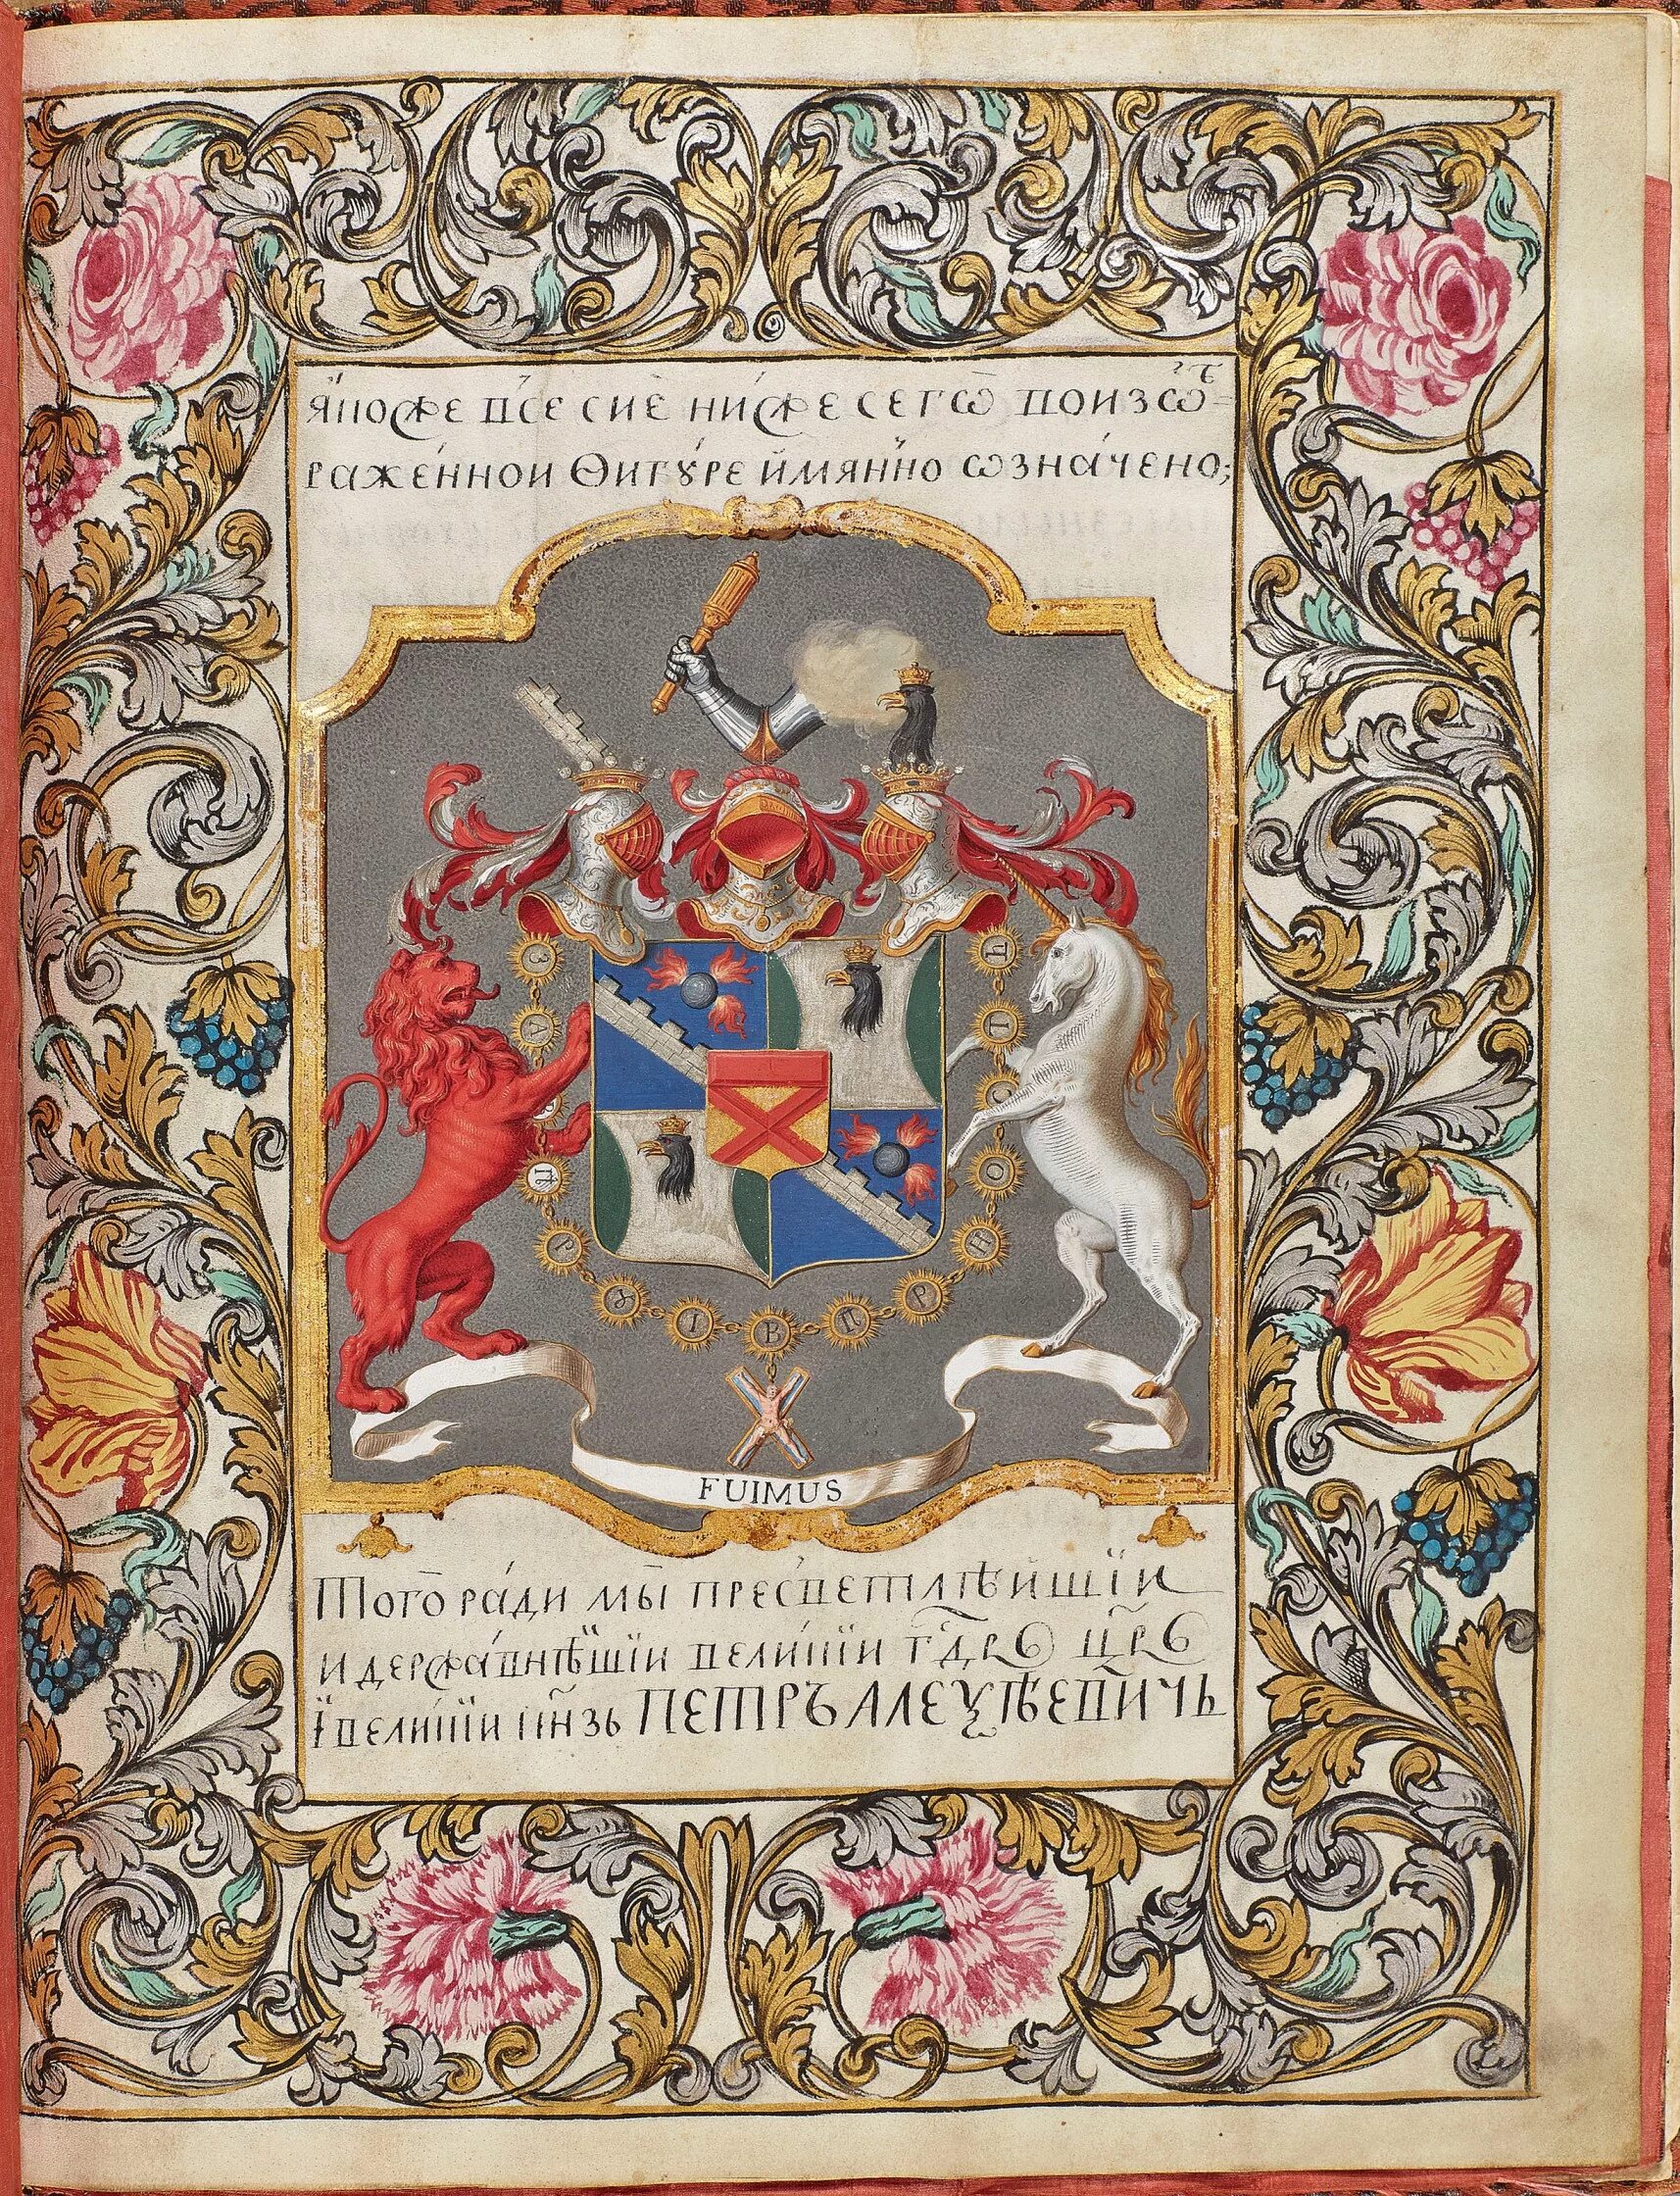 Я́коже все сиѐ ни́же сегѡ̀ воизѡб-
раже́нной Ѳигꙋ́ре и́мянно ѡзна́чено;
З А В Ѣ Р У I В Ѣ Р Н О С Т Ь
FUIMUS
Того̀ ра́ди мы̀ пресвѣтлѣ́йшїи
и держа́внѣйшїи вели́кїи гд҃рь цр҃ь
ї вели́кїи кн҃зь ПЕТРЪ АЛЕѮѢЕВИЧЬ